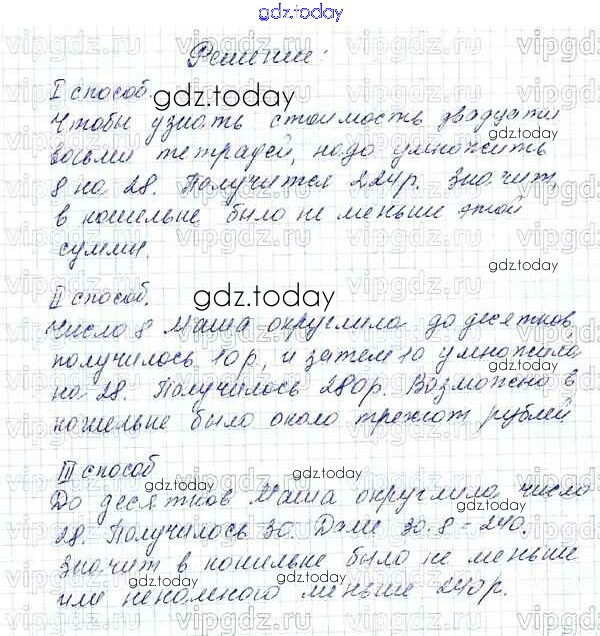 gdz.today
Решение:
I способ.
gdz.today
Чтобы узнать стоимость двадцати
gdz.today
восьми тетрадей, надо умножить
8 на 28. Получится 224р. Значит,
в кошельке было не меньше этой
суммы.
gdz.today
II способ.
gdz.today
Число 8 Маша округлила до десятков,
получилось 10р, и затем 10 умножила
на 28. Получилось 280р. Возможно в
gdz.today
кошельке было около трехсот рублей.
III способ
gdz.today
До десятков Маша округлила число
gdz.today
28. Получилось 30. Далее 30·8=240.
Значит в кошельке было не меньше
gdz.today
или ненамного меньше 240р.
vipgdz.ru